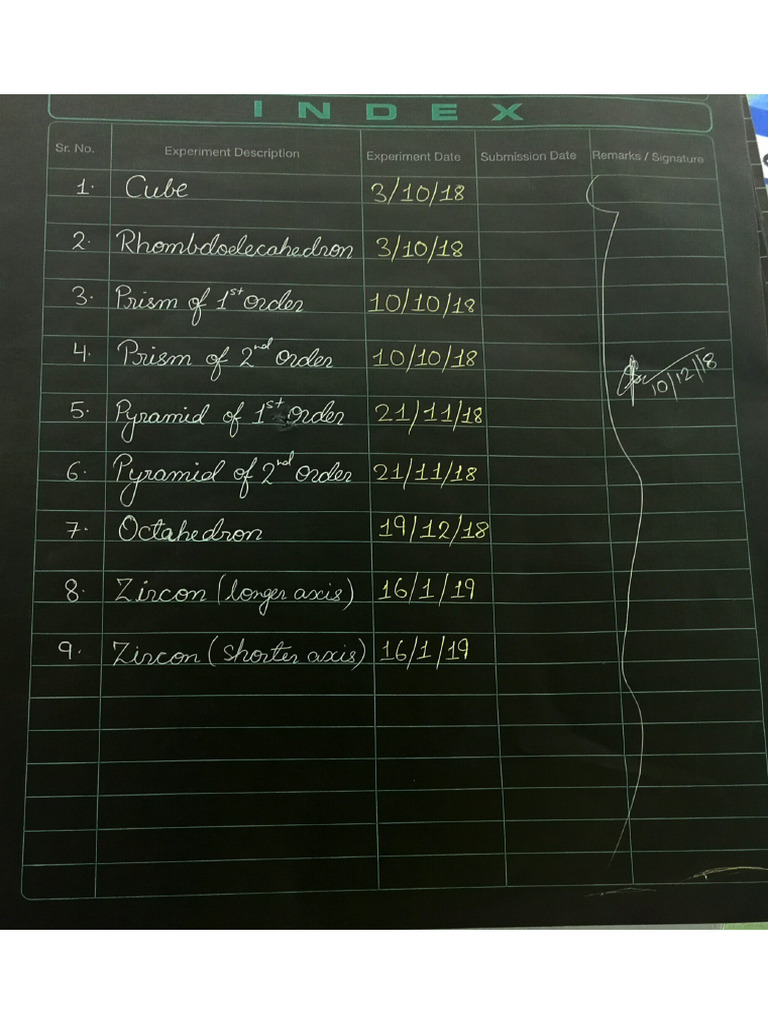 INDEX
Sr. No. Experiment Description Experiment Date Submission Date Remarks / Signature
1. Cube 3/10/18
2. Rhombdoelecahedron 3/10/18
3. Prism of 1st order 10/10/18
4. Prism of 2nd order 10/10/18
10/12/18
5. Pyramid of 1st order 21/11/18
6. Pyramid of 2nd order 21/11/18
7. Octahedron 19/12/18
8. Zircon (longer axis) 16/1/19
9. Zircon (shorter axis) 16/1/19